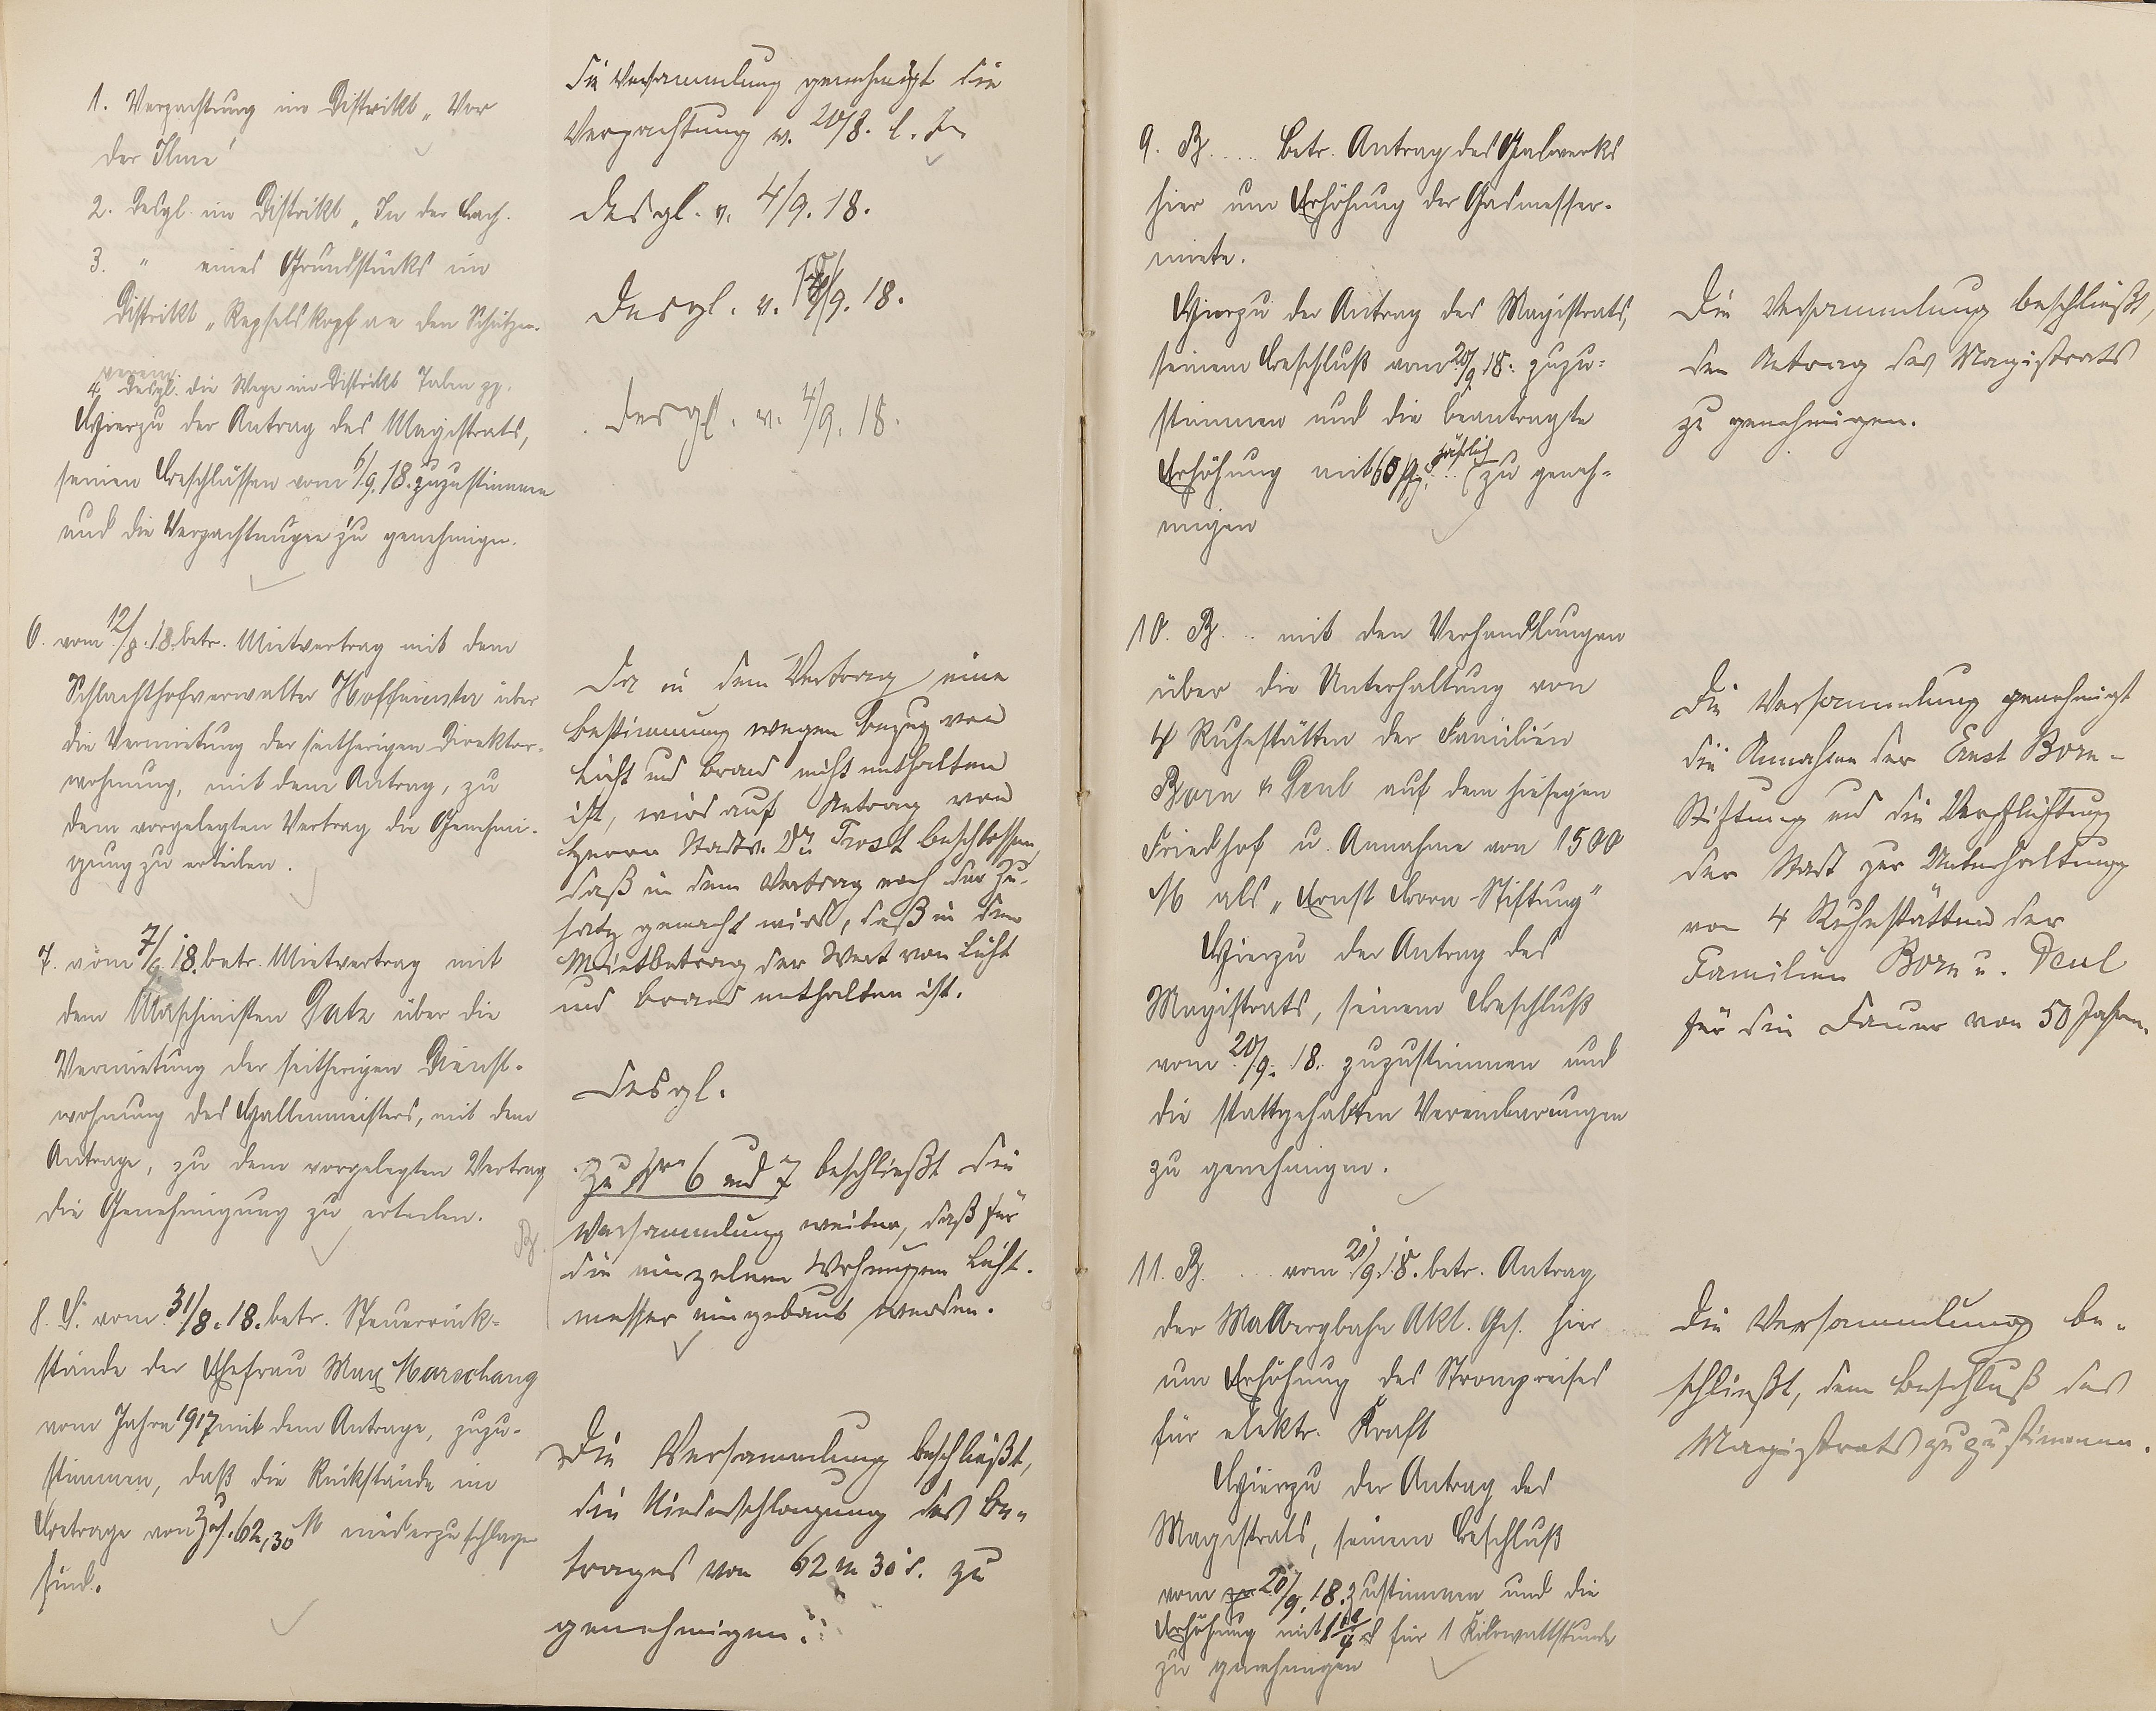 1. Verpachtung im Distrikt „Vor
der Ilme"
2. Desgl. im Distrikt „In der Bach.
3. " eines Grundstücks im
Distrikt „Repselskopf an den Schützen-
verein.
4. Desgl. die Wege im Distrikt Jalen pp.
Hierzu der Antrag des Magistrats,
seinen Beschlüssen vom 6/9.18. zuzustimmen
und die Verpachtungen zu genehmigen.
6. vom 12/8.18. betr. Mietvertrag mit dem
Schlachthofverwalter Hoffmann über
die Vermietung der seitherigen Direktor-
wohnung, mit dem Antrag, zu
dem vorgelegten Vertrag die Genehmi-
gung zu erteilen.
7. vom 7/9 18. betr. Mietvertrag mit
dem Maschinisten Gatz über die
Vermietung der seitherigen Dienst-
wohnung des Hallenmeisters, mit dem
Antrage, zu dem vorgelegten Vertrag
die Genehmigung zu erteilen.
8. B. vom 31/8.18. betr. Steuerrück-
stände der Ehefrau Max Marschang
vom Jahre 1917 mit dem Antrage, zuzu-
stimmen, daß die Rückstände im
Betrage von zus. 62,30 M niederzuschlagen
sind.
Die Versammlung genehmigt die
Verpachtung v. 20/8. l. Js.
desgl. v. 4/9.18.
desgl. v. /9.18.
desgl. v. 4/9.18.
Da in dem Vertrag eine
Bestimmung wegen Bezug von
Licht und Brand nicht enthalten
ist, wird auf Antrag von
Herrn Stadtv. Dr. Trost beschlossen,
daß in dem Vertrag noch der Zu-
satz gemacht wird, daß in dem
Mietbetrag der Wert von Licht
und Brand enthalten ist.
desgl.
Zu Nr. 6 und 7 beschließt die
Versammlung weiter, daß für
die einzelnen Wohnungen Licht-
messer eingebaut werden.
Die Versammlung beschließt,
die Niederschlagung des Be-
trages von 62 M 30 d. zu
genehmigen.
9. B..... betr. Antrag des Gaswerks
hier um Erhöhung der Gasmesser-
miete.
Hierzu der Antrag des Magistrats,
seinem Beschluß vom 20/9 18. zuzu-
stimmen und die beantragte
Erhöhung mit 60 Pfg. jährlich zu geneh-
migen
10. B. .. mit den Verhandlungen
über die Unterhaltung von
4 Ruhestätten der Familien
Born u. Deul auf dem hiesigen
Friedhof u. Annahme von 1500
M als „Ernst Born-Stiftung"
Hierzu der Antrag des
Magistrats, seinem Beschluß
vom 20/9. 18. zuzustimmen und
die stattgehabten Vereinbarungen
zu genehmigen.
11. B. ... vom 20/9.18. betr. Antrag
der Malbergbahn Akt. Ges. hier
um Erhöhung des Strompreises
für elektr. Kraft
Hierzu der Antrag des
Magistrats, seinem Beschluß
vom 20/9.18. zustimmen und die
Erhöhung mit für 1 Kilowattstunde
zu genehmigen
Die Versammlung beschließt,
den Antrag des Magistrats
zu genehmigen.
Die Versammlung genehmigt
die Annahme der Ernst Born-
Stiftung und die Verpflichtung
der Stadt zur Unterhaltung
von 4 Ruhestätten der
Familien Born u. Deul
für die Dauer von 50 Jahren.
Die Versammlung be-
schließt, dem Beschluß des
Magistrats zuzustimmen.